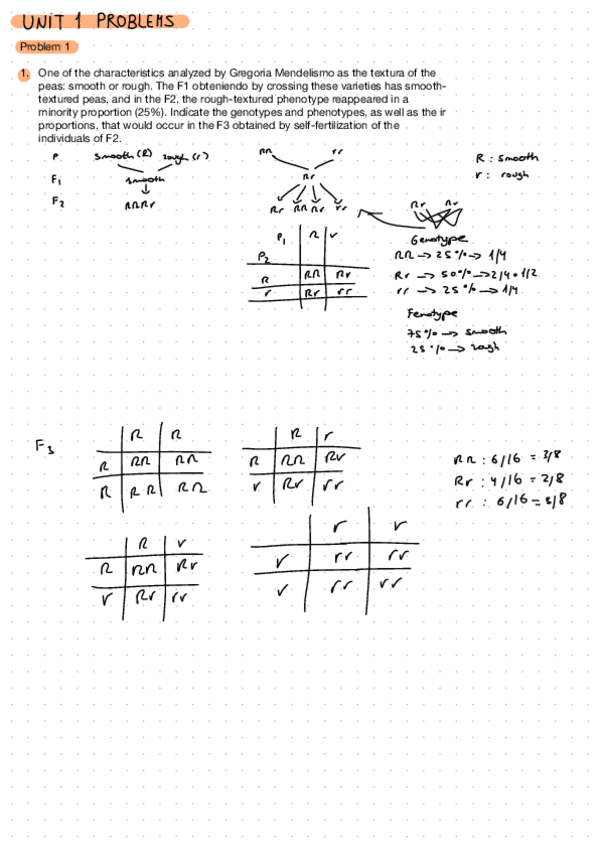 UNIT 1 PROBLEMS
Problem 1
1. One of the characteristics analyzed by Gregoria Mendelismo as the textura of the
peas: smooth or rough. The F1 obteniendo by crossing these varieties has smooth-
textured peas, and in the F2, the rough-textured phenotype reappeared in a
minority proportion (25%). Indicate the genotypes and phenotypes, as well as the ir
proportions, that would occur in the F3 obtained by self-fertilization of the
individuals of F2.
P smooth (R) rough (r) RR rr R : smooth
F1 smooth Rr r : rough
F2 RRRr Rr RR Rr rr Rr Rr
P1 R r Genotype
P2 RR → 25% → 1/4
R RR Rr Rr → 50% → 2/4 = 1/2
r Rr rr rr → 25% → 1/4
Fenotype
75% → smooth
25% → rough
F3
R R
R RR RR
R RR RR
R r
R RR Rr
r Rr rr
RR : 6/16 = 3/8
Rr : 4/16 = 2/8
rr : 6/16 = 3/8
R r
R RR Rr
r Rr rr
r r
r rr rr
r rr rr